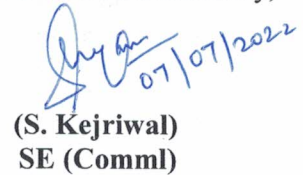 07/07/2022
(S. Kejriwal)
SE (Comml)